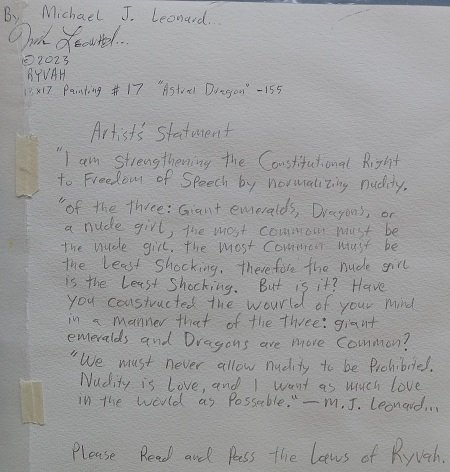 By Michael J. Leonard...
©2023
RYVAH
17x17 Painting #17 "Astral Dragon" -155
Artist's Statment
"I am Strengthening the Constitutional Right
to Freedom of Speech by normalizing nudity.
"of the three: Giant emeralds, Dragons, or
a nude girl, the most common must be
the nude girl. the most Common must be
the Least Shocking. therefore the nude girl
is the Least Shocking. But is it? Have
you constructed the wourld of your mind
in a manner that of the three: giant
emeralds and Dragons are more Common?
"We must never allow nudity to be Prohibited.
Nudity is Love, and I want as much Love
in the world as Possable." — M.J. Leonard...
Please Read and Pass the Laws of Ryvah.